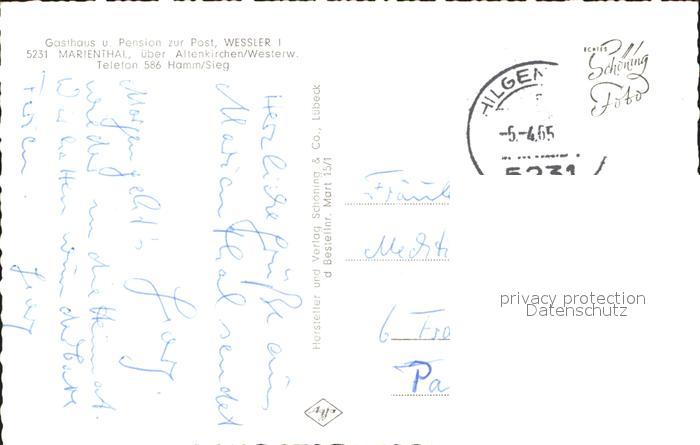 Gasthaus u. Pension zur Post, WESSLER I
5231 MARIENTHAL, über Altenkirchen/Westerw.
Telefon 586 Hamm/Sieg
Herzliche Grüße aus
Marienthal sendet
Morgen geht's
wieder in die Heimat.
Wir hatten
Hersteller und Verlag Schöning & Co., Lübeck
d Bestellnr. Mart 15/1
ECHTES
Schöning
Foto
HILGEN
-5.-4.65
5231
Fräul
6 Fra
Pa
privacy protection
Datenschutz